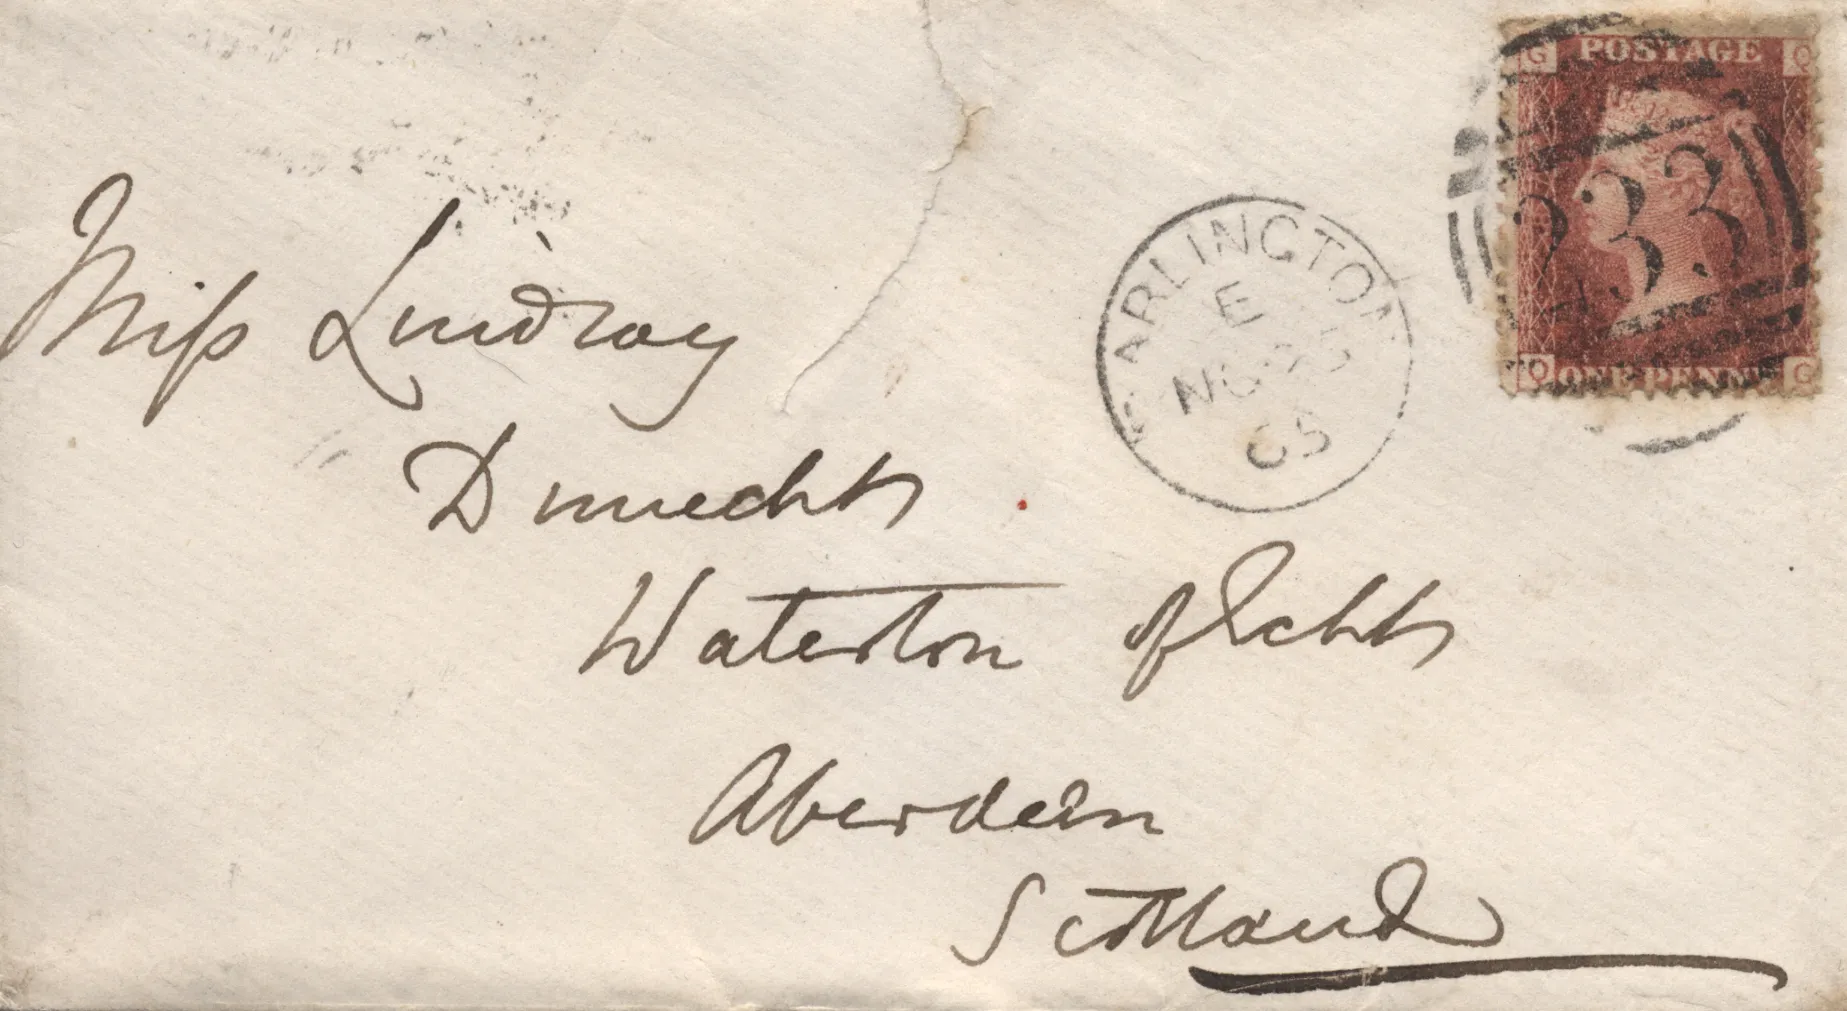 G POSTAGE Q
233
Q ONE PENNY G
DARLINGTON
E
65
Miss Lindsay
Dunecht
Waterton of Echt
Aberdeen
Scotland